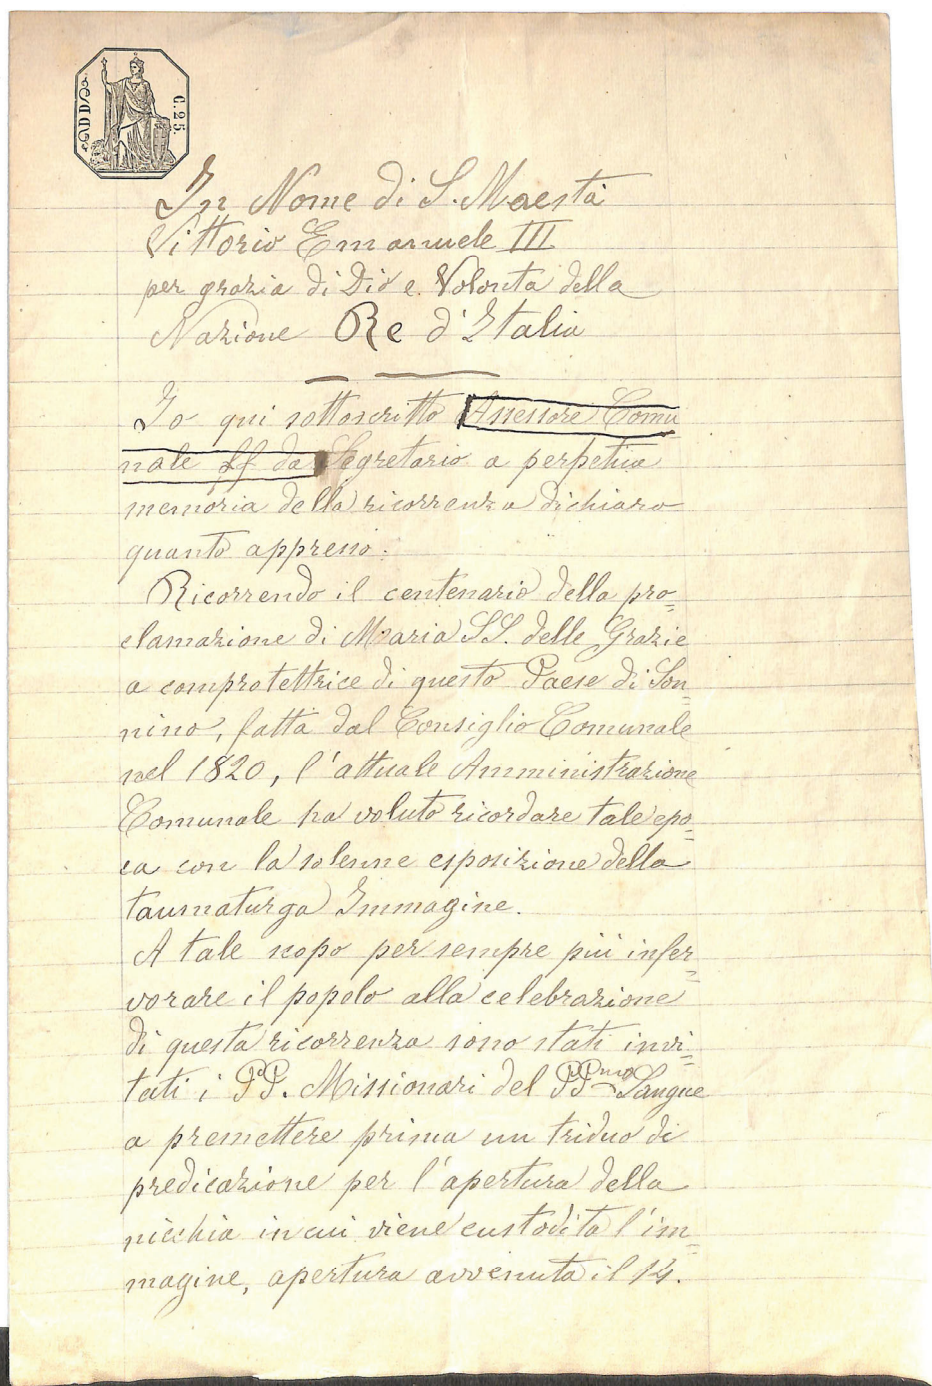 C. 25.
In Nome di S. Maestà
Vittorio Emanuele III
per grazia di Dio e Volontà della
Nazione Re d'Italia
Io qui sottoscritto Assessore Comu
nale ff da Segretario a perpetua
memoria della ricorrenza dichiaro
quanto appresso:
Ricorrendo il centenario della pro=
clamazione di Maria SS. delle Grazie
a comprotettrice di questo Paese di Son=
nino, fatta dal Consiglio Comunale
nel 1820, l'attuale Amministrazione
Comunale ha voluto ricordare tale epo=
ca con la solenne esposizione della
taumaturga Immagine.
A tale scopo per sempre più infer=
vorare il popolo alla celebrazione
di questa ricorrenza sono stati invi=
tati i PP. Missionari del PPmo Sangue
a premettere prima un triduo di
predicazione per l'apertura della
nicchia in cui viene custodita l'im=
magine, apertura avvenuta il 14.